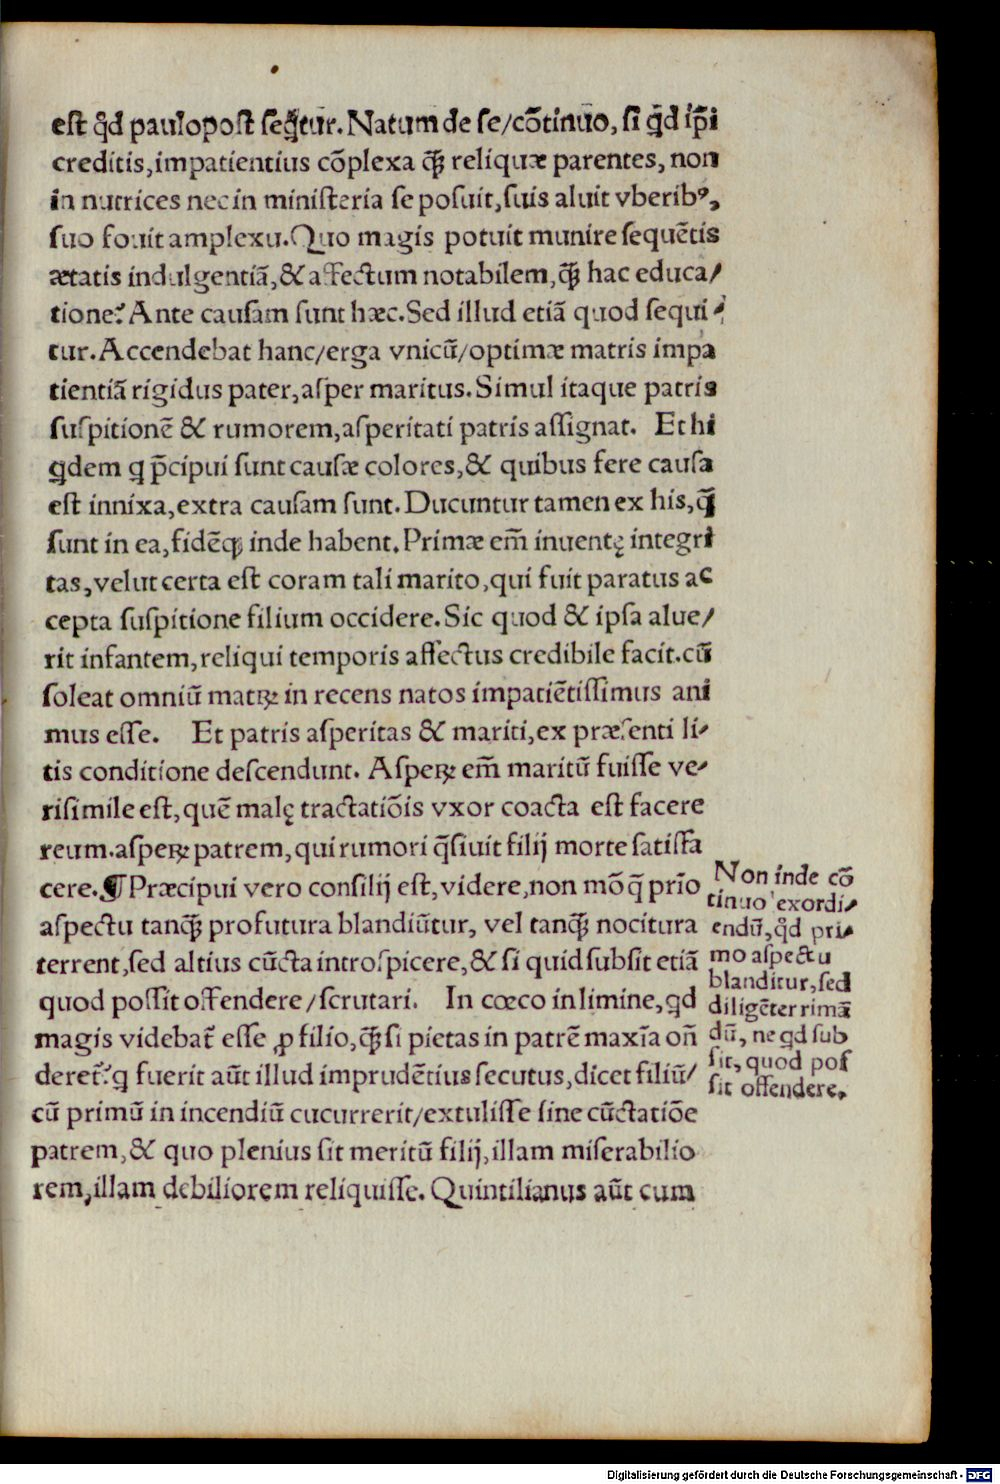 est qd̄ paulopost seq̄tur. Natum de se/cōtinuo, si qd̄ ip̄i
creditis, impatientius cōplexa q̄ꝫ reliquæ parentes, non
in nutrices nec in ministeria se posuit, suis aluit vberibꝰ,
suo fouit amplexu. Quo magis potuit munire sequētis
ætatis indulgentiā, & affectum notabilem, q̄ꝫ hac educa/
tione? Ante causam sunt hæc. Sed illud etiā quod sequi/
tur. Accendebat hanc/erga vnicū/optimæ matris impa
tientiā rigidus pater, asper maritus. Simul itaque patris
suspitionē & rumorem, asperitati patris assignat. Et hi
qdem q p̄cipui sunt causæ colores, & quibus fere causa
est innixa, extra causam sunt. Ducuntur tamen ex his, q̄
sunt in ea, fidēqꝫ inde habent. Primæ em̄ inuentę integri
tas, velut certa est coram tali marito, qui fuit paratus ac
cepta suspitione filium occidere. Sic quod & ipsa alue/
rit infantem, reliqui temporis affectus credibile facit. cū
soleat omniū matꝝ in recens natos impatiētissimus ani
mus esse. Et patris asperitas & mariti, ex præsenti li/
tis conditione descendunt. Aspeꝝ em̄ maritū fuisse ve/
risimile est, quē malę tractatiōis vxor coacta est facere
reum. aspeꝝ patrem, qui rumori q̄siuit filij morte satisfa
cere. ¶ Præcipui vero consilij est, videre, non mōq̄ prīo
aspectu tanq̄ꝫ profutura blandiūtur, vel tanq̄ꝫ nocitura
terrent, sed altius cūcta introspicere, & si quid subsit etiā
quod possit offendere/scrutari. In cœco in limine, qd
magis videbat̄ esse ꝓ filio, q̄ꝫ si pietas in patrē maxīa on̄
deret̄? q fuerit aūt illud imprudētius secutus, dicet filiū/
cū primū in incendiū cucurrerit/extulisse sine cūctatiōe
patrem, & quo plenius sit meritū filij, illam miserabilio
rem, illam debiliorem reliquisse. Quintilianus aūt cum
Non inde cō
tinuo exordi/
endū, qd̄ pri/
mo aspectu
blanditur, sed
diligēter rimā
dū, ne qd sub
sit, quod pos
sit offendere.
Digitalisierung gefördert durch die Deutsche Forschungsgemeinschaft - DFG